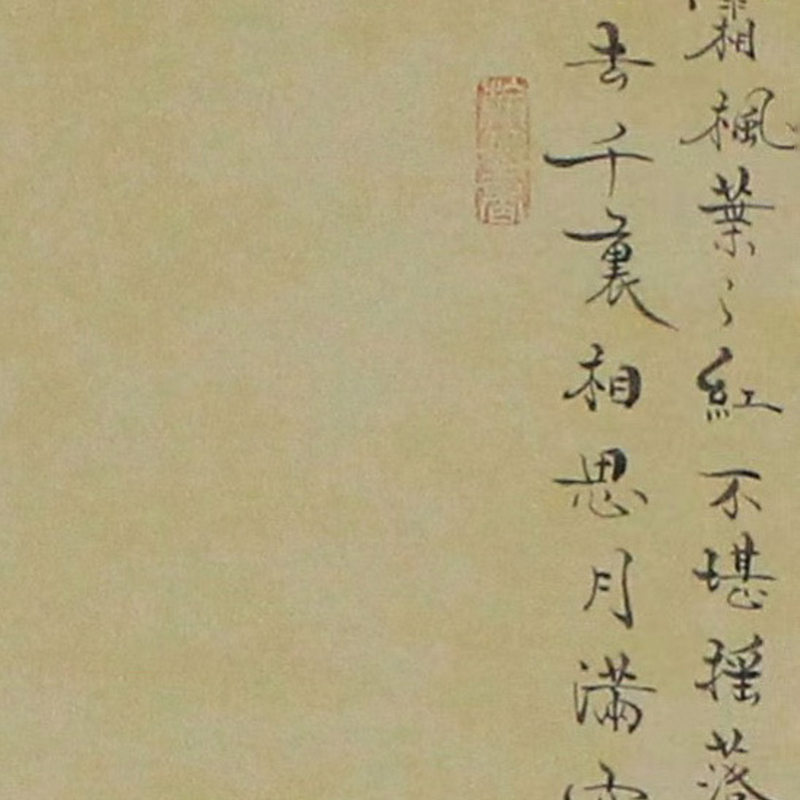 霜楓葉々紅不堪搖落
去千裏相思月滿